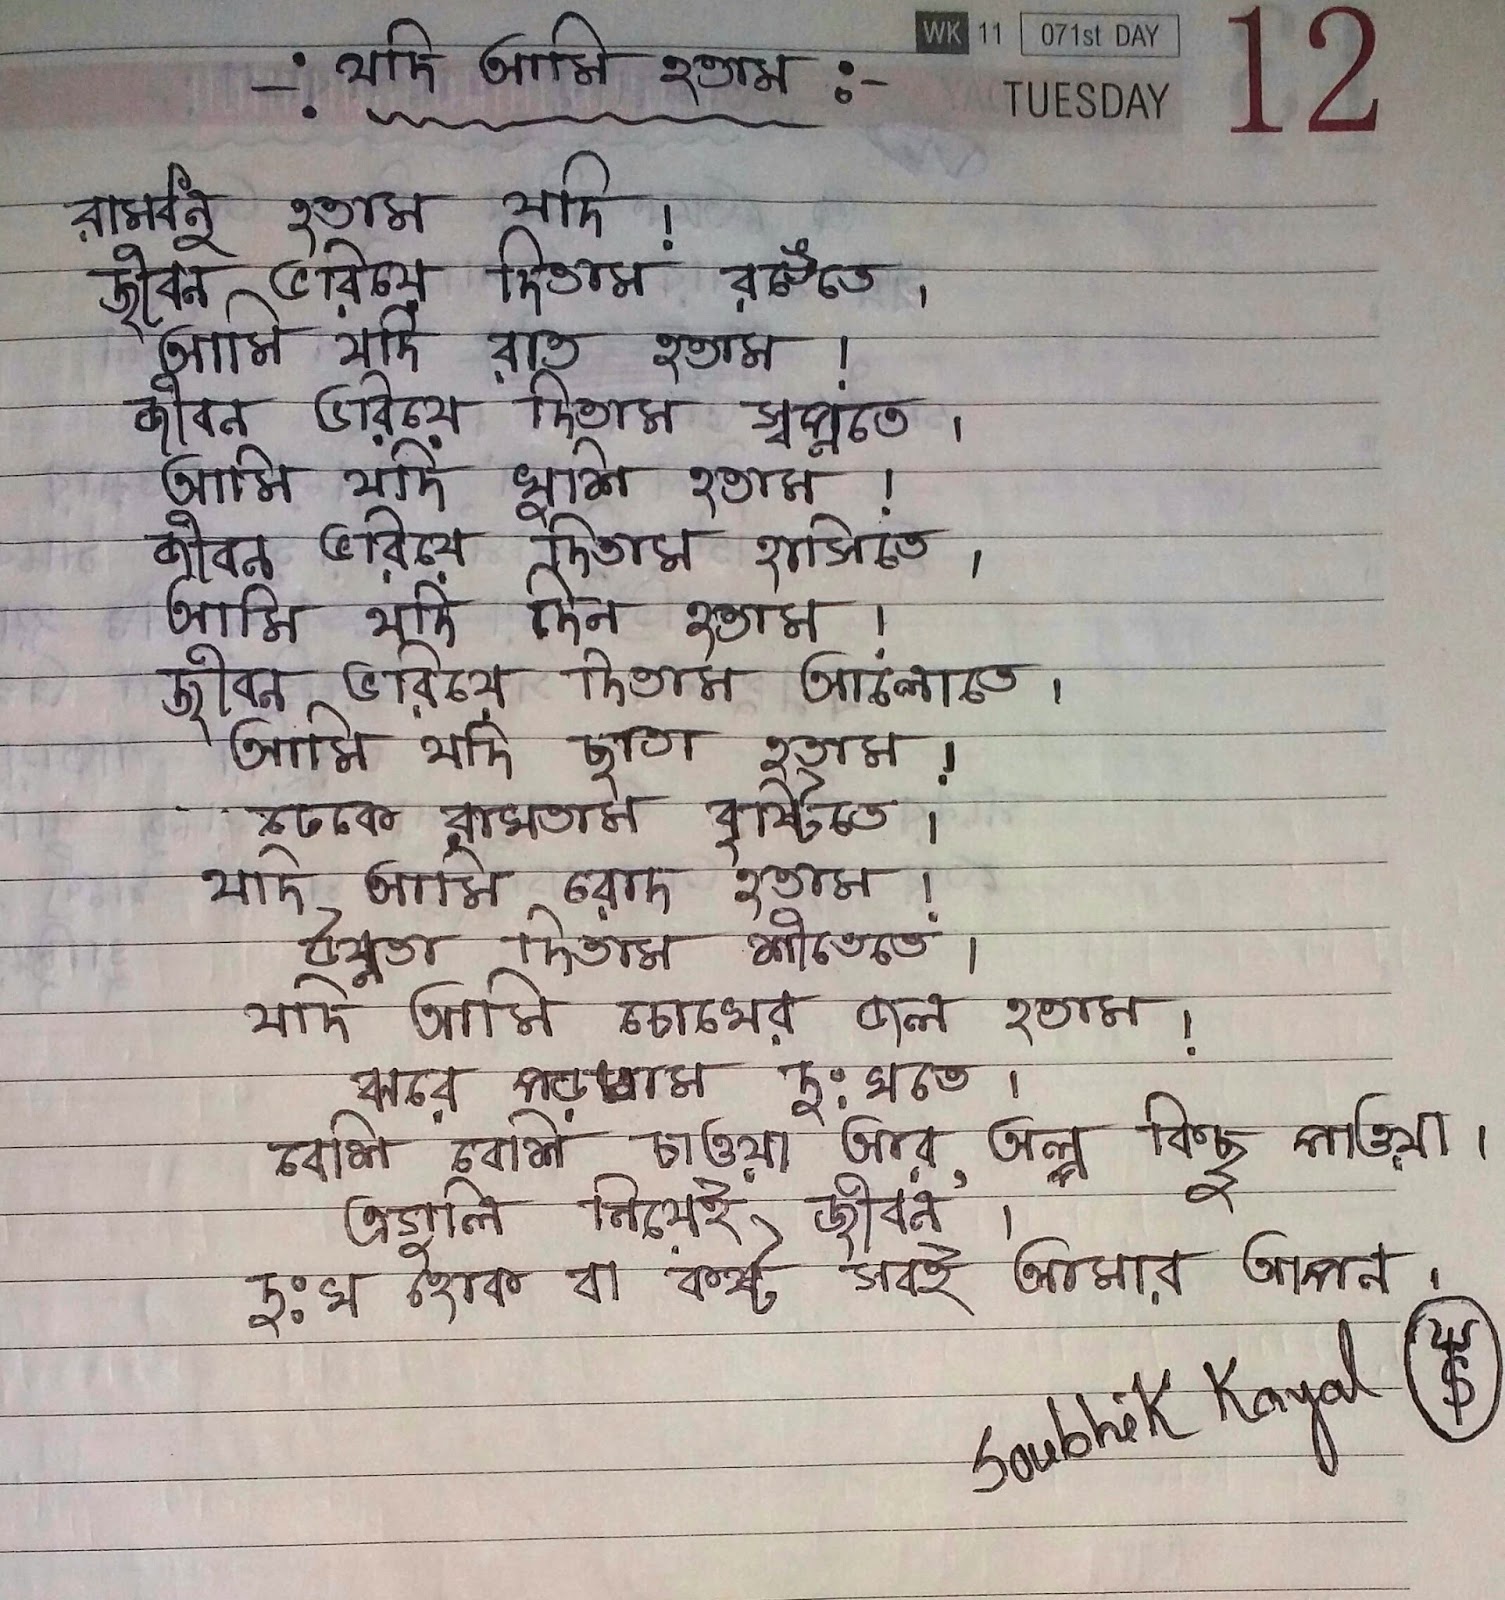 WK 11 071st DAY
TUESDAY 12
-: যদি আমি হতাম :-
রামধনু হতাম যদি !
জীবন ভরিয়ে দিতাম রঙেতে ।
আমি যদি রাত হতাম !
জীবন ভরিয়ে দিতাম স্বপ্নতে ।
আমি যদি খুশি হতাম !
জীবন ভরিয়ে দিতাম হাসিতে ।
আমি যদি দিন হতাম !
জীবন ভরিয়ে দিতাম আলোতে ।
আমি যদি ছাতা হতাম !
ঢেকে রাখতাম বৃষ্টিতে ।
যদি আমি রোদ হতাম !
উষ্ণতা দিতাম শীতেতে ।
যদি আমি চোখের জল হতাম !
ঝরে পড়তাম দুঃখতে ।
বেশি বেশি চাওয়া আর, অল্প কিছু পাওয়া ।
এগুলি নিয়েই, জীবন ।
দুঃখ হোক বা কষ্ট সবই আমার আপন ।
Soubhik Kayal